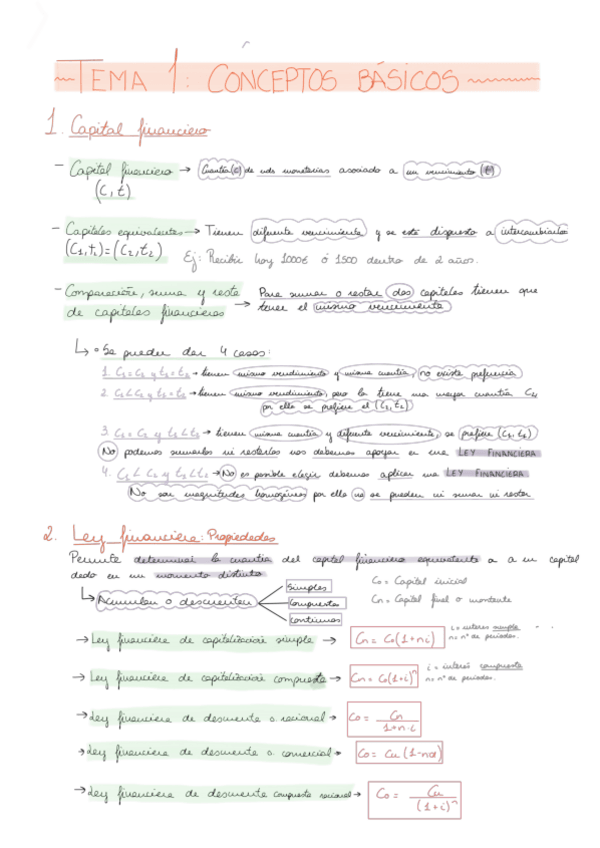 ~TEMA 1: CONCEPTOS BÁSICOS~
1. Capital financiero
- Capital financiero → Cuantía (C) de uds monetarias asociado a un vencimiento (t)
(C, t)
- Capitales equivalentes → Tienen diferente vencimiento y se está dispuesto a intercambiarlos
(C1, t1) = (C2, t2) Ej: Recibir hoy 1000€ ó 1500 dentro de 2 años.
- Comparación, suma y resta de capitales financieros → Para sumar o restar dos capitales tienen que
tener el mismo vencimiento
↳ • Se pueden dar 4 casos:
1. C1 = C2 y t1 = t2 → tienen mismo vendimiento y misma cuantía, no existe preferencia
2. C1 < C2 y t1 = t2 → tienen mismo vendimiento, pero la tiene una mayor cuantía C2
por ello se prefiere el (C2, t2)
3. C1 = C2 y t1 < t2 → tienen misma cuantía y diferente vencimiento, se prefiere (C1, t1)
No podemos sumarlos ni restarlos nos debemos apoyar en una LEY FINANCIERA
4. C1 < C2 y t1 < t2 → No es posible elegir debemos aplicar una LEY FINANCIERA
No son magnitudes homogéneas por ello no se pueden ni sumar ni restar
2. Ley financiera: Propiedades
Permite determinar la cuantía del capital financiero equivalente a a un capital
dado en un momento distinto
↳ Acumulan o descuentan
simples
compuestas
continuas
Co = Capital inicial
Cn = Capital final o montante
→ Ley financiera de capitalización simple → Cn = Co(1+ni) i = interés simple
n = nº de periodos.
→ Ley financiera de capitalización compuesta → Cn = Co(1+i)^n i = interés compuesto
n = nº de periodos.
→ Ley financiera de descuento s. racional → Co = Cn / 1+n·i
→ Ley financiera de descuento s. comercial → Co = Cn (1-nd)
→ Ley financiera de descuento compuesto racional → Co = Cn / (1+i)^n